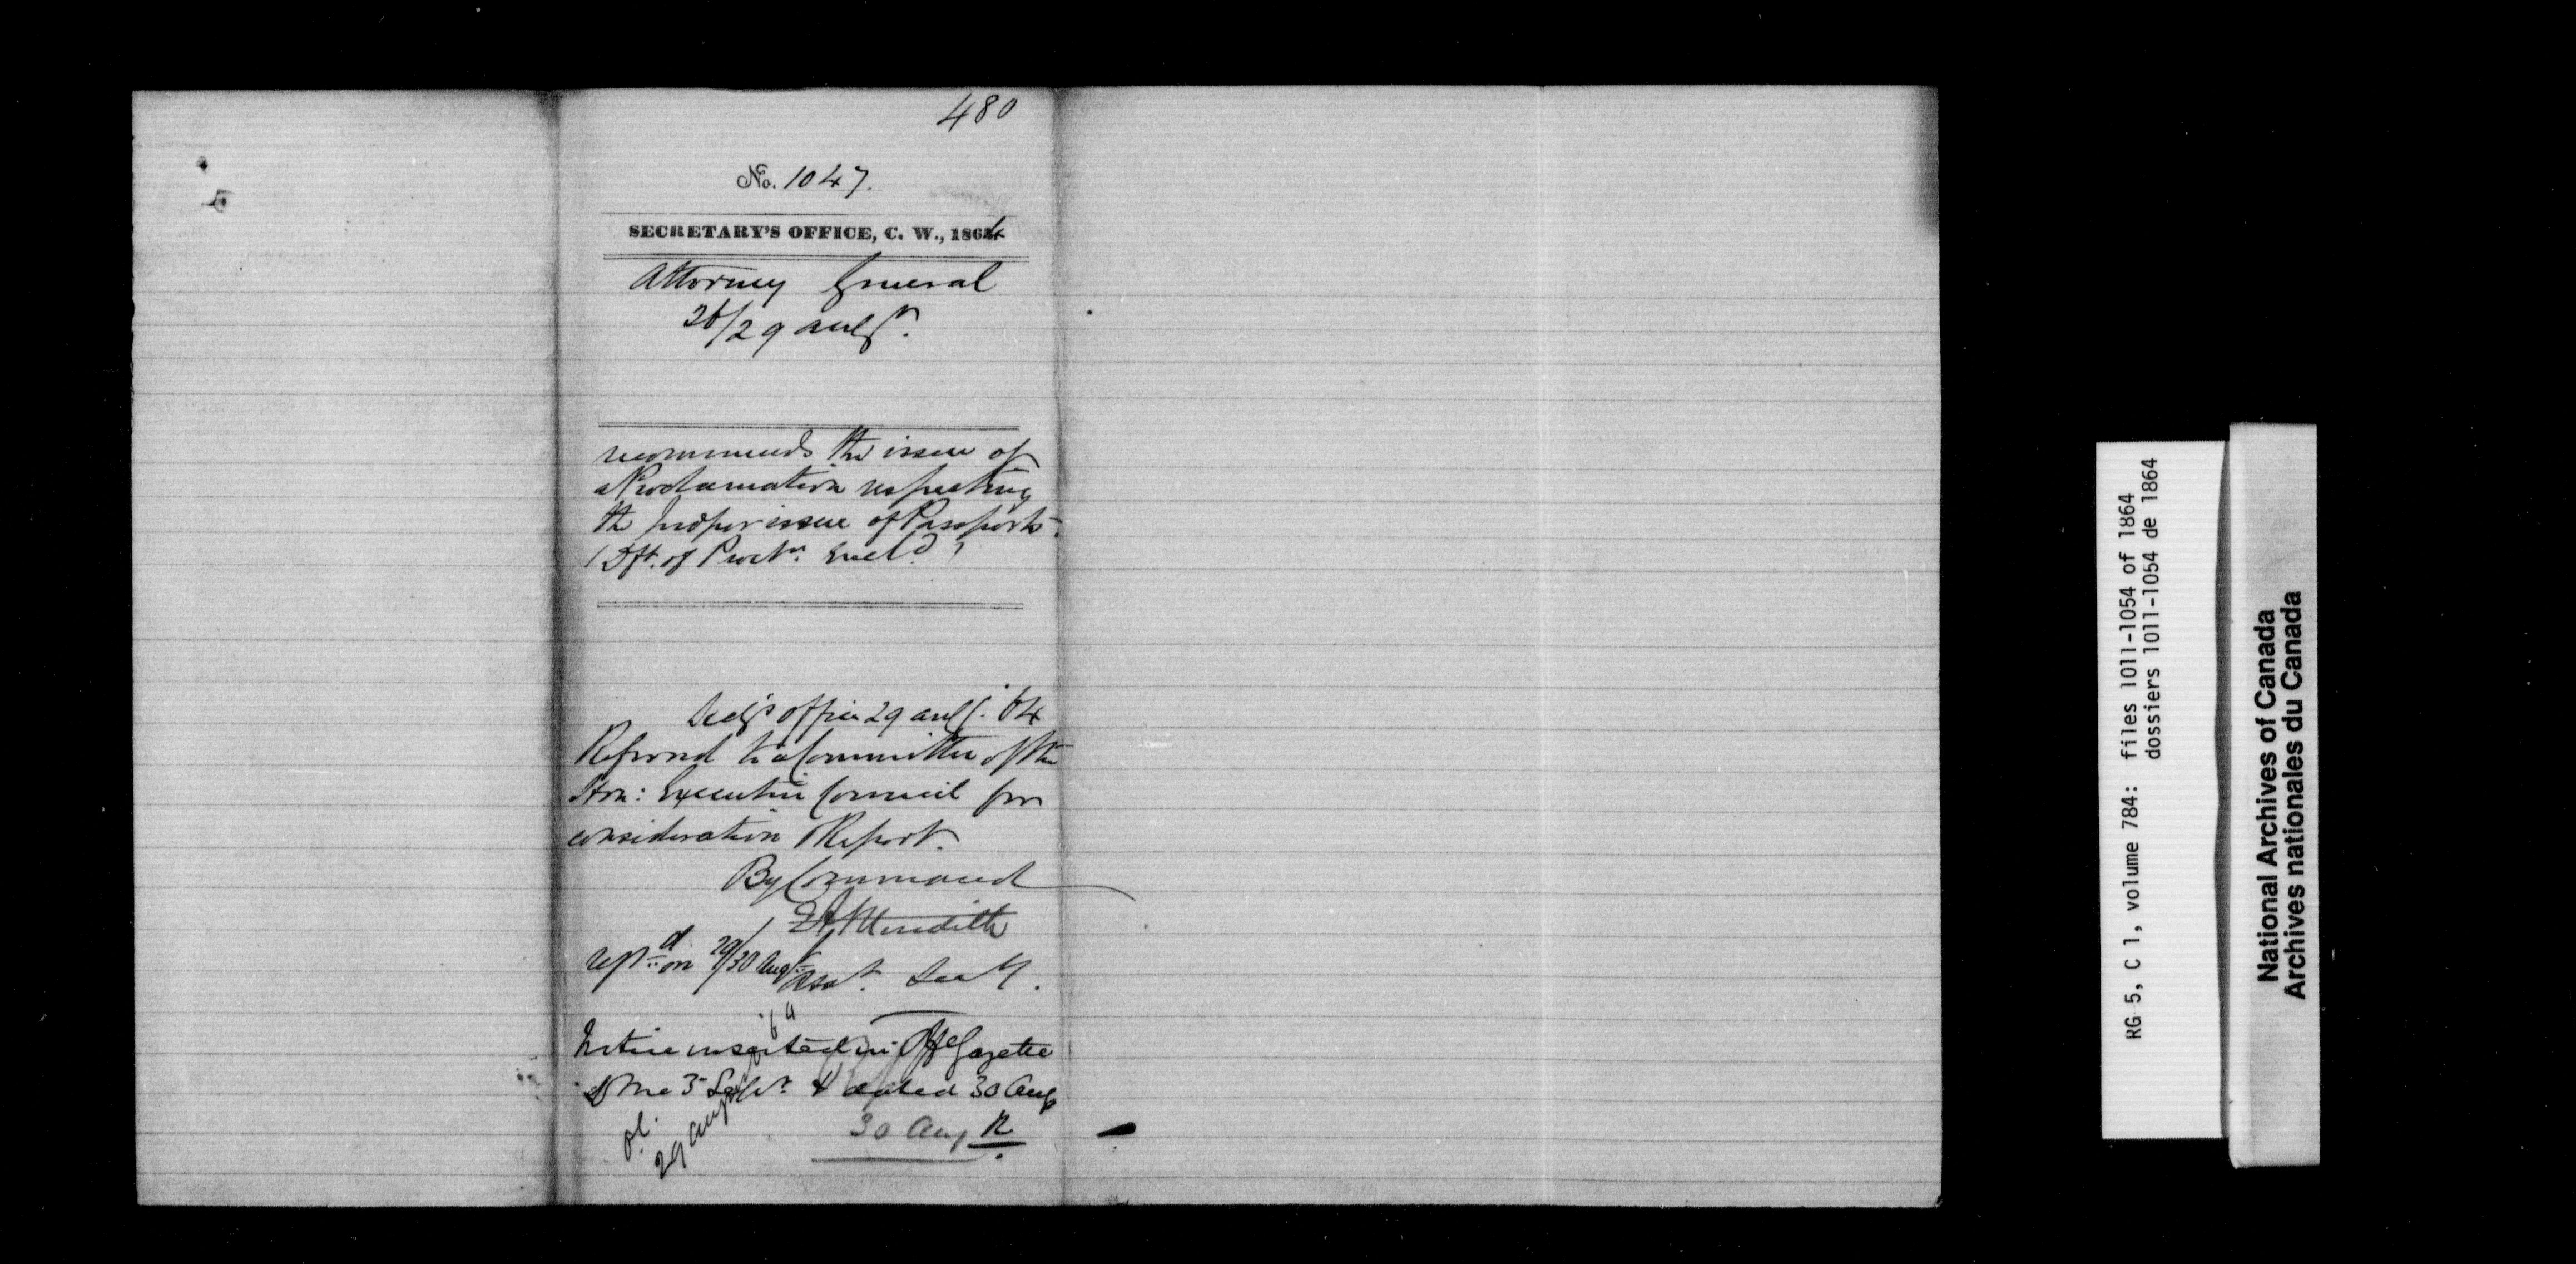 480
No. 1047.
SECRETARY'S OFFICE, C. W., 1864
Attorney General
26/29 Augst.
recommends the issue of
a Proclamation respecting
the proper issue of Passports.
(Dft. of Proctn. Encld)
Secy's office 29 Augt. 64
Referred to a Committee of the
Hon: Executive Council for
consideration & Report.
By Command
E A Meredith
rept.d on 29/30 Augt
Asst. Secy.
Notice inserted in Off Gazette
of the 3 Sept. & dated 30 Aug
30 Aug R
29 Augt '64
RG 5, C 1, volume 784: files 1011-1054 of 1864
dossiers 1011-1054 de 1864
National Archives of Canada
Archives nationales du Canada